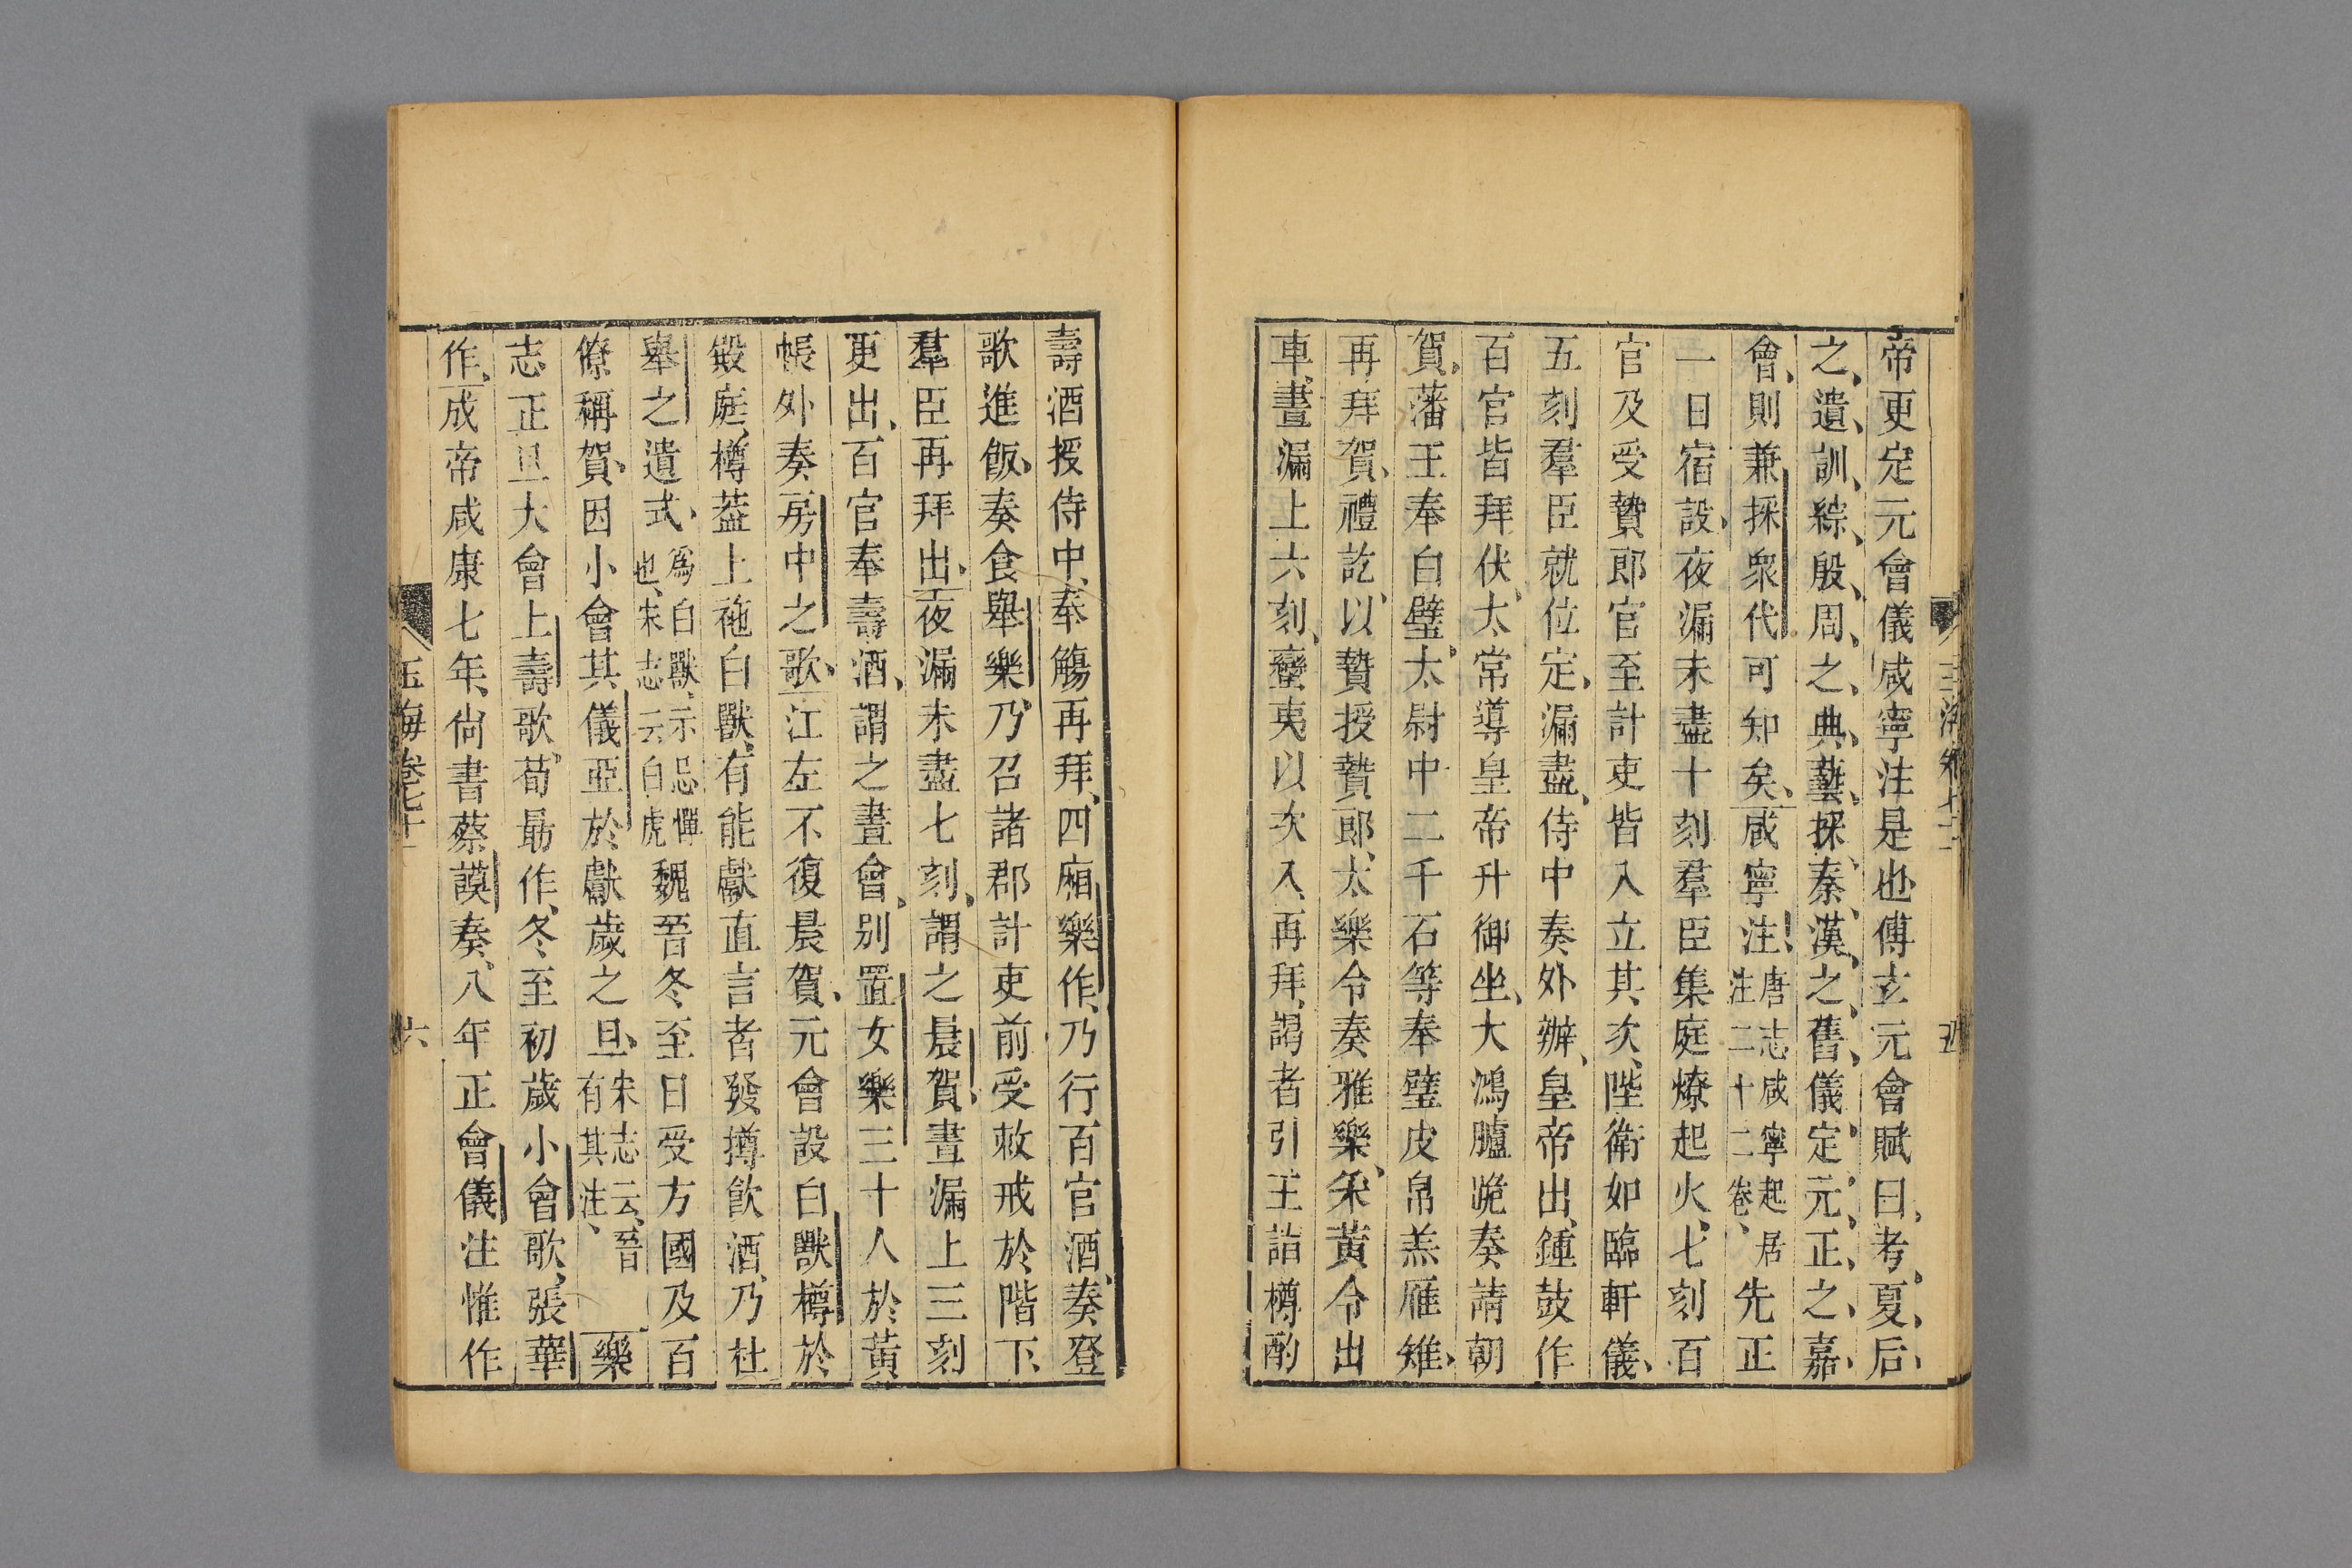 帝更定元會儀咸寧注是也傅玄元會賦曰考夏后
之遺訓綜殷周之典藝採秦漢之舊儀定元正之嘉
會則兼採衆代可知矣咸寧注唐志咸寧起居注二十二卷先正
一日宿設夜漏未盡十刻羣臣集庭燎起火七刻百
官及受贄郎官至計吏皆入立其次陛衛如臨軒儀
五刻羣臣就位定漏盡侍中奏外辦皇帝出鍾鼓作
百官皆拜伏太常導皇帝升御坐大鴻臚跪奏請朝
賀藩王奉白璧太尉中二千石等奉璧皮帛羔雁雉
再拜賀禮訖以贄授贄郎太樂令奏雅樂乘黃令出
車晝漏上六刻蠻夷以次入再拜謁者引王詣樽酌
壽酒授侍中奉觴再拜四廂樂作乃行百官酒奏登
歌進飯奏食舉樂乃召諸郡計吏前受敕戒於階下
羣臣再拜出夜漏未盡七刻謂之晨賀晝漏上三刻
更出百官奉壽酒謂之晝會别置女樂三十人於黃
帳外奏房中之歌江左不復晨賀元會設白獸樽於
殿庭樽蓋上施白獸有能獻直言者發樽飲酒乃杜
舉之遺式爲白獸示忌憚也宋志云白虎魏晉冬至日受方國及百
僚稱賀因小會其儀亞於獻歲之旦宋志云晉有其注樂
志正旦大會上壽歌荀勗作冬至初歲小會歌張華
作成帝咸康七年尙書蔡謨奏八年正會儀注惟作
玉海卷七十一
六